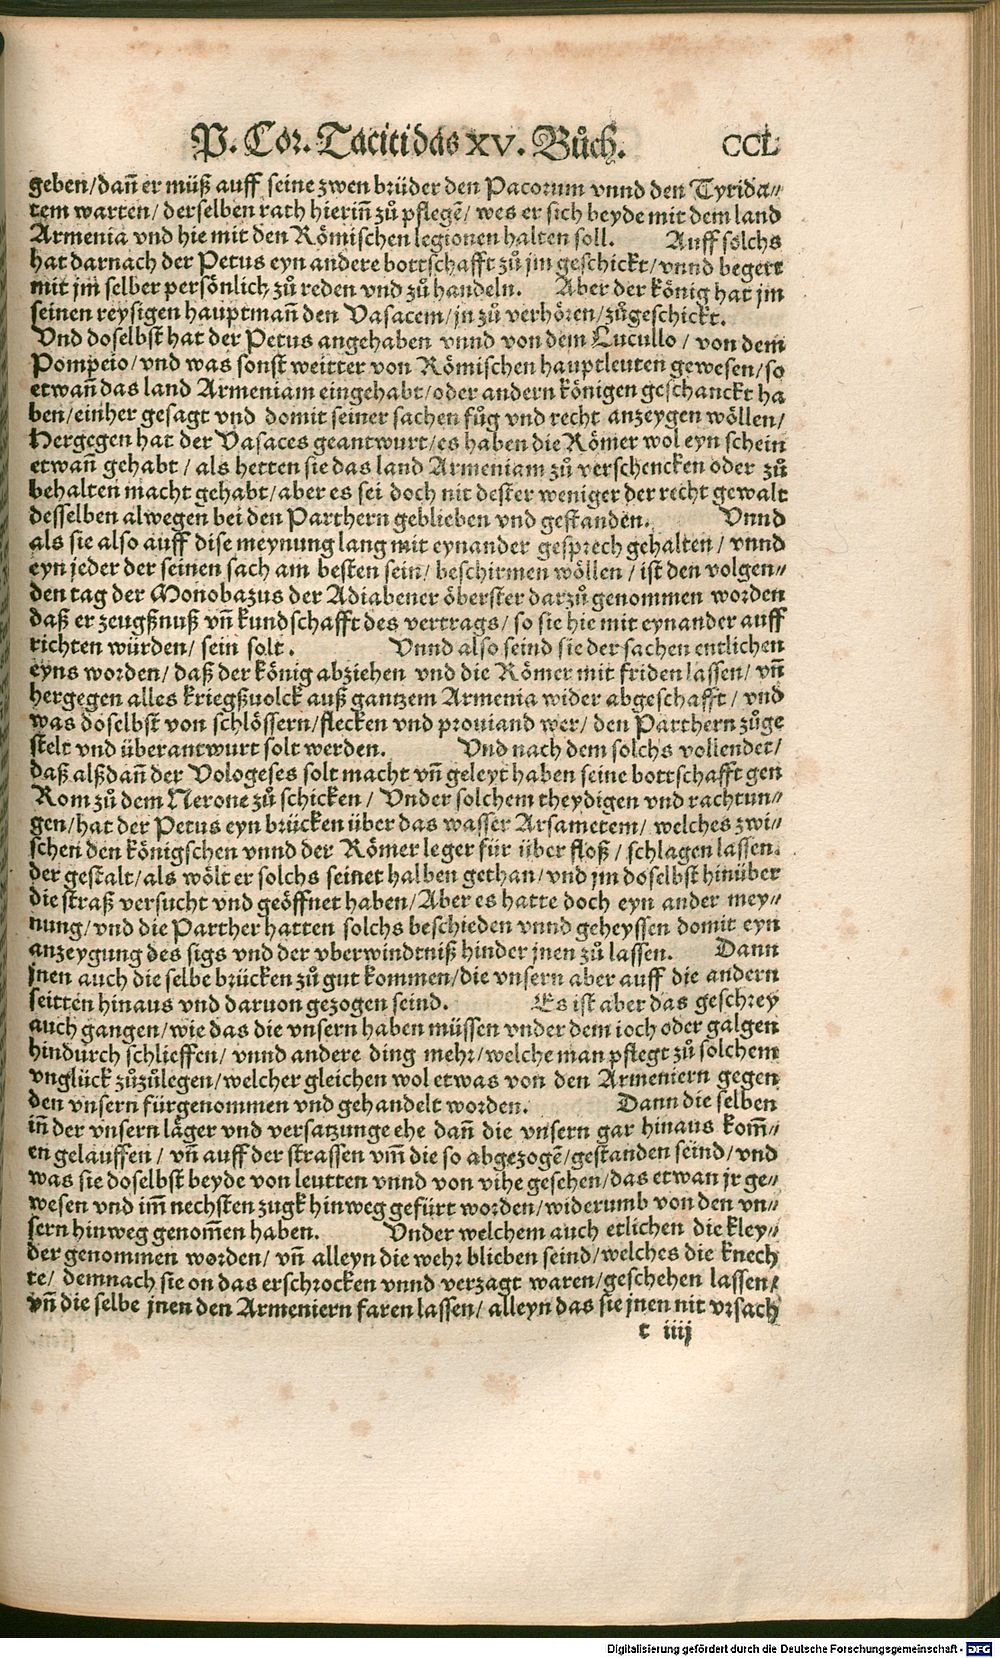 P. Cor. Taciti das XV. Bůch. CCL
geben/dañ er müß auff seine zwen brüder den Pacorum vnnd den Tyrida⸗
tem warten/ derselben rath hieriñ zů pflegẽ/ wes er sich beyde mit dem land
Armenia vnd hie mit den Römischen legionen halten soll. Auff solchs
hat darnach der Petus eyn andere bottschafft zů jm geschickt/vnnd begert
mit jm selber persönlich zů reden vnd zů handeln. Aber der könig hat jm
seinen reysigen hauptmañ den Vasacem/jn zů verhören/zůgeschickt.
Vnd doselbst hat der Petus angehaben vnnd von dem Lucullo/ von dem
Pompeio/vnd was sonst weitter von Römischen hauptleuten gewesen/so
etwañ das land Armeniam eingehabt/oder andern königen geschanckt ha
ben/einher gesagt vnd domit seiner sachen fůg vnd recht anzeygen wöllen/
Hergegen hat der Vasaces geantwurt/es haben die Römer wol eyn schein
etwañ gehabt/ als hetten sie das land Armeniam zů verschencken oder zů
behalten macht gehabt/aber es sei doch nit dester weniger der recht gewalt
desselben alwegen bei den Parthern geblieben vnd gestanden. Vnnd
als sie also auff dise meynung lang mit eynander gesprech gehalten/ vnnd
eyn jeder der seinen sach am besten sein/ beschirmen wöllen/ ist den volgen⸗
den tag der Monobazus der Adiabener öberster darzů genommen worden
daß er zeugßnuß vñ kundschafft des vertrags/ so sie hie mit eynander auff
richten würden/ sein solt. Vnnd also seind sie der sachen entlichen
eyns worden/ daß der könig abziehen vnd die Römer mit friden lassen/ vñ
hergegen alles kriegßuolck auß gantzem Armenia wider abgeschafft/ vnd
was doselbst von schlössern/flecken vnd prouiand wer/ den Parthern zůge
stelt vnd überantwurt solt werden. Vnd nach dem solchs vollendet/
daß alßdañ der Vologeses solt macht vñ geleyt haben seine bottschafft gen
Rom zů dem Nerone zů schicken/ Vnder solchem theydigen vnd rachtun⸗
gen/hat der Petus eyn brücken über das wasser Arsametem/ welches zwi⸗
schen den königschen vnnd der Römer leger für über floß/ schlagen lassen.
der gestalt/als wölt er solchs seinet halben gethan/vnd jm doselbst hinüber
die straß versucht vnd geöffnet haben/Aber es hatte doch eyn ander mey⸗
nung/vnd die Parther hatten solchs beschieden vnnd geheyssen domit eyn
anzeygung des sigs vnd der vberwindtniß hinder jnen zů lassen. Dann
jnen auch die selbe brücken zů gut kommen/die vnsern aber auff die andern
seitten hinaus vnd daruon gezogen seind. Es ist aber das geschrey
auch gangen/wie das die vnsern haben müssen vnder dem ioch oder galgen
hindurch schlieffen/ vnnd andere ding mehr/welche man pflegt zů solchem
vnglück zůzůlegen/welcher gleichen wol etwas von den Armeniern gegen
den vnsern fürgenommen vnd gehandelt worden. Dann die selben
iñ der vnsern läger vnd versatzunge ehe dañ die vnsern gar hinaus kom̃⸗
en gelauffen/ vñ auff der strassen vm̃ die so abgezogẽ/gestanden seind/vnd
was sie doselbst beyde von leutten vnnd von vihe gesehen/das etwan jr ge⸗
wesen vnd im̃ nechsten zugk hinweg gefürt worden/widerumb von den vn⸗
sern hinweg genom̃en haben. Vnder welchem auch etlichen die kley⸗
der genommen worden/ vñ alleyn die wehr blieben seind/welches die knech
te/ demnach sie on das erschrocken vnnd verzagt waren/geschehen lassen/
vñ die selbe jnen den Armeniern faren lassen/ alleyn das sie jnen nit vrsach
t iiij
Digitalisierung gefördert durch die Deutsche Forschungsgemeinschaft - DFG